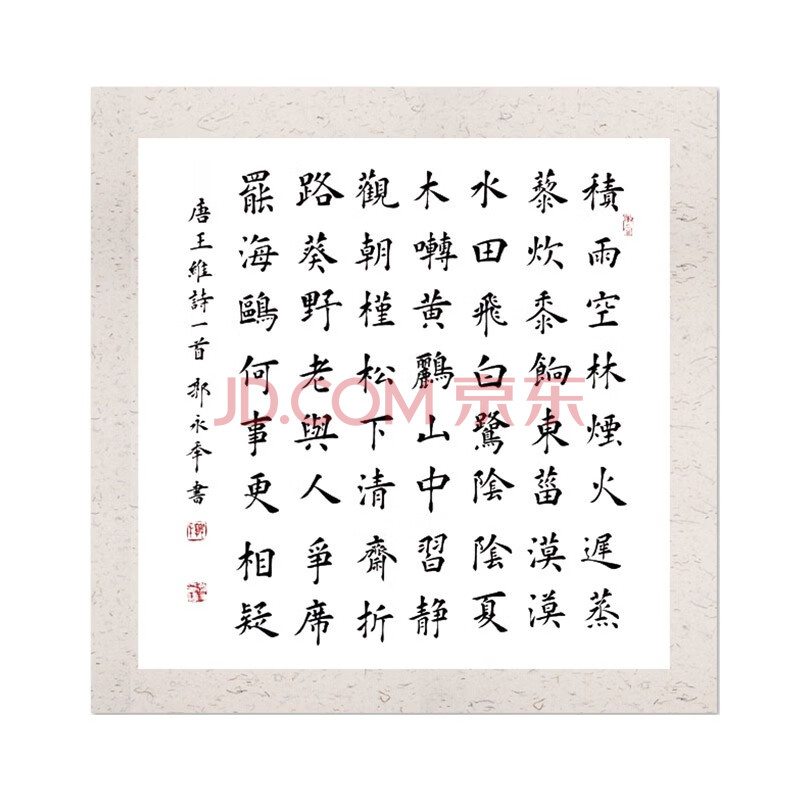 積雨空林煙火遲蒸
藜炊黍餉東菑漠漠
水田飛白鷺陰陰夏
木囀黄鸝山中習静
觀朝槿松下清齋折
路葵野老與人爭席
罷海鷗何事更相疑
唐王維詩一首 永書
JD.COM 京东